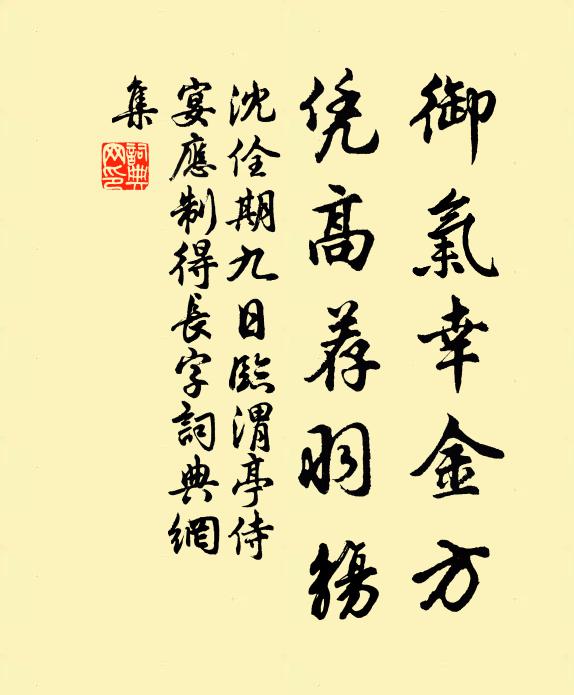 御氣幸金方
凭高荐羽觞
沈佺期九日臨渭亭侍
宴應制得長字詞典網
集
詞典
网印